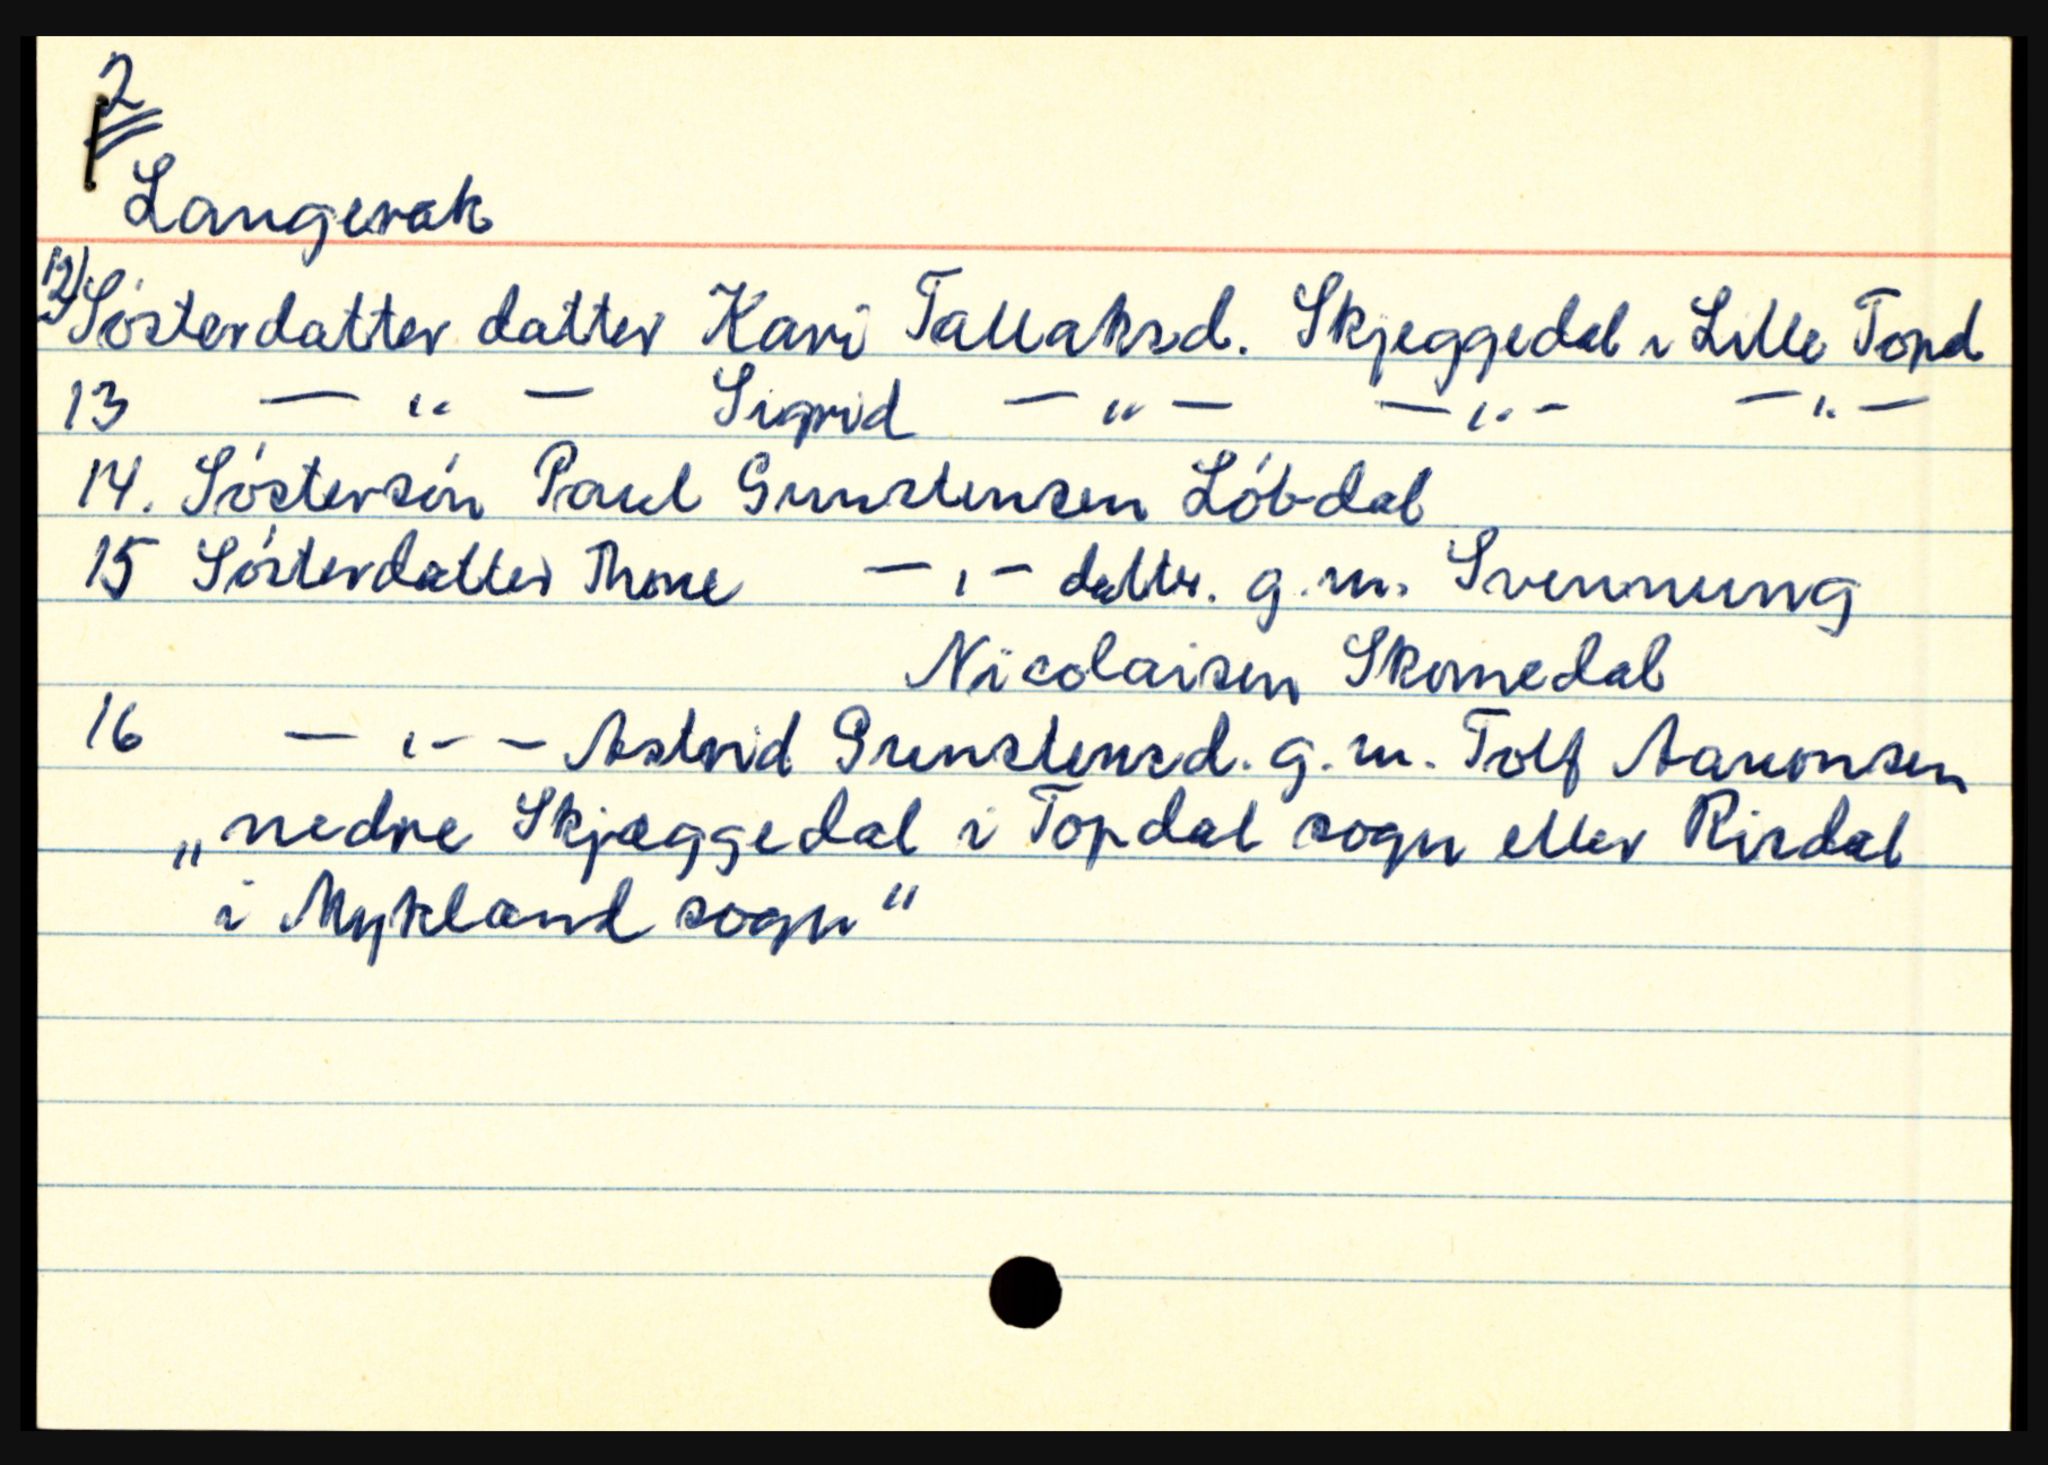 2
Langerak
12) Sósterdatter datter Kari Tallaksd. Skjeggedal i Lille Topd
13 — „ — Sigrid — „ — — „ — — „ —
14. Sóstersón Paul Gunstensen Lóbdal
15 Sósterdatter Thone — „ — datter. g.m. Svennung
Nicolaisen Skomedal
16 — „ — Astrid Gunstensd. g.m. Tolf Aanonsen
„nedre Skjæggedal i Topdal sogn eller Risdal
i Mykland sogn“